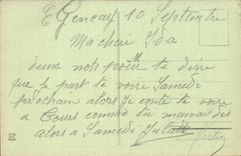 Gencay 10 Septembre
Ma cher Ida
deux mots pour te dire
que je part te voire Samedi
prochain alors je conte te voire
a Tours comme tu
alors a Samedi